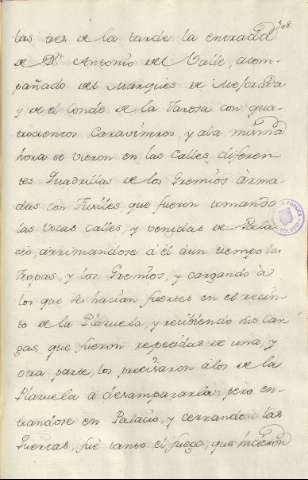 las tres de la tarde la entrada
de Dn. Antonio del Valle, acom-
pañado del Marques de
y de el Conde de la con qua-
trocientos Caravineros, y ala misma
hora se vieron en las Calles, diferen-
tes Quadrillas de los Gremios arma-
das con Fusiles que fueron tomando
las vocas Calles, y venidas de Pala-
cio, arrimandose á él áun tiempo la
Tropas, y los Gremios, y cargando á
los que se hacian fuertes en el recin-
to de la Plazuela, y recibiendo
que fueron repetidas de una, y
otra parte, los precisaron álos de la
Plazuela á desampararla; pero en-
trandose en Palacio, y cerrando las
Puertas, fué tanto el fuego, que hicieron